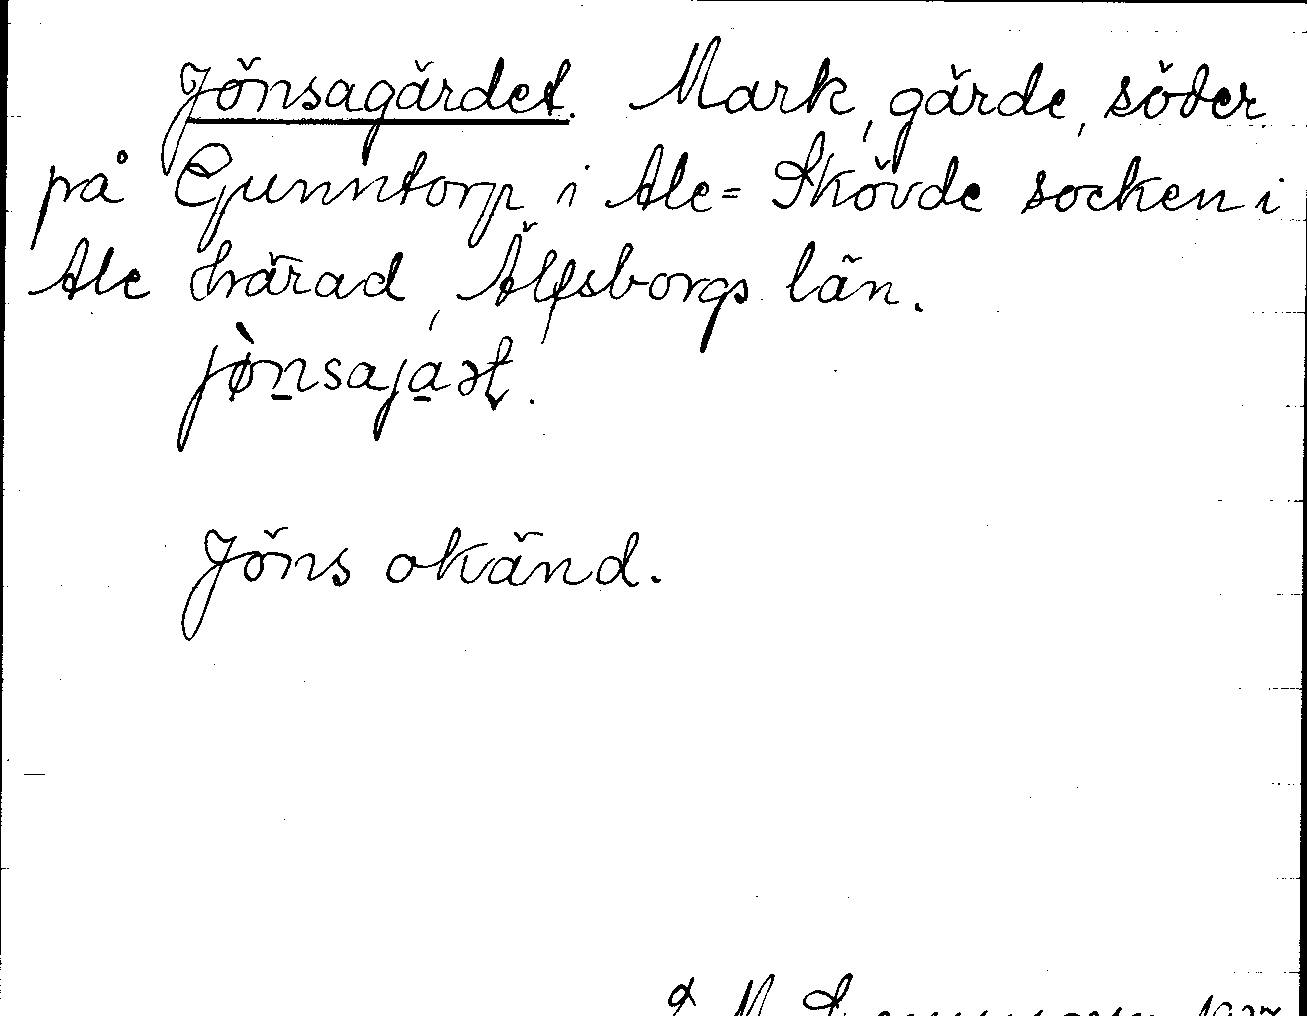 Jönsagärdet. Mark, gärde, söder
på Gunntorp i Ale=Skövde socken i
Ale härad, Älfsborgs län.
Jöns okänd.